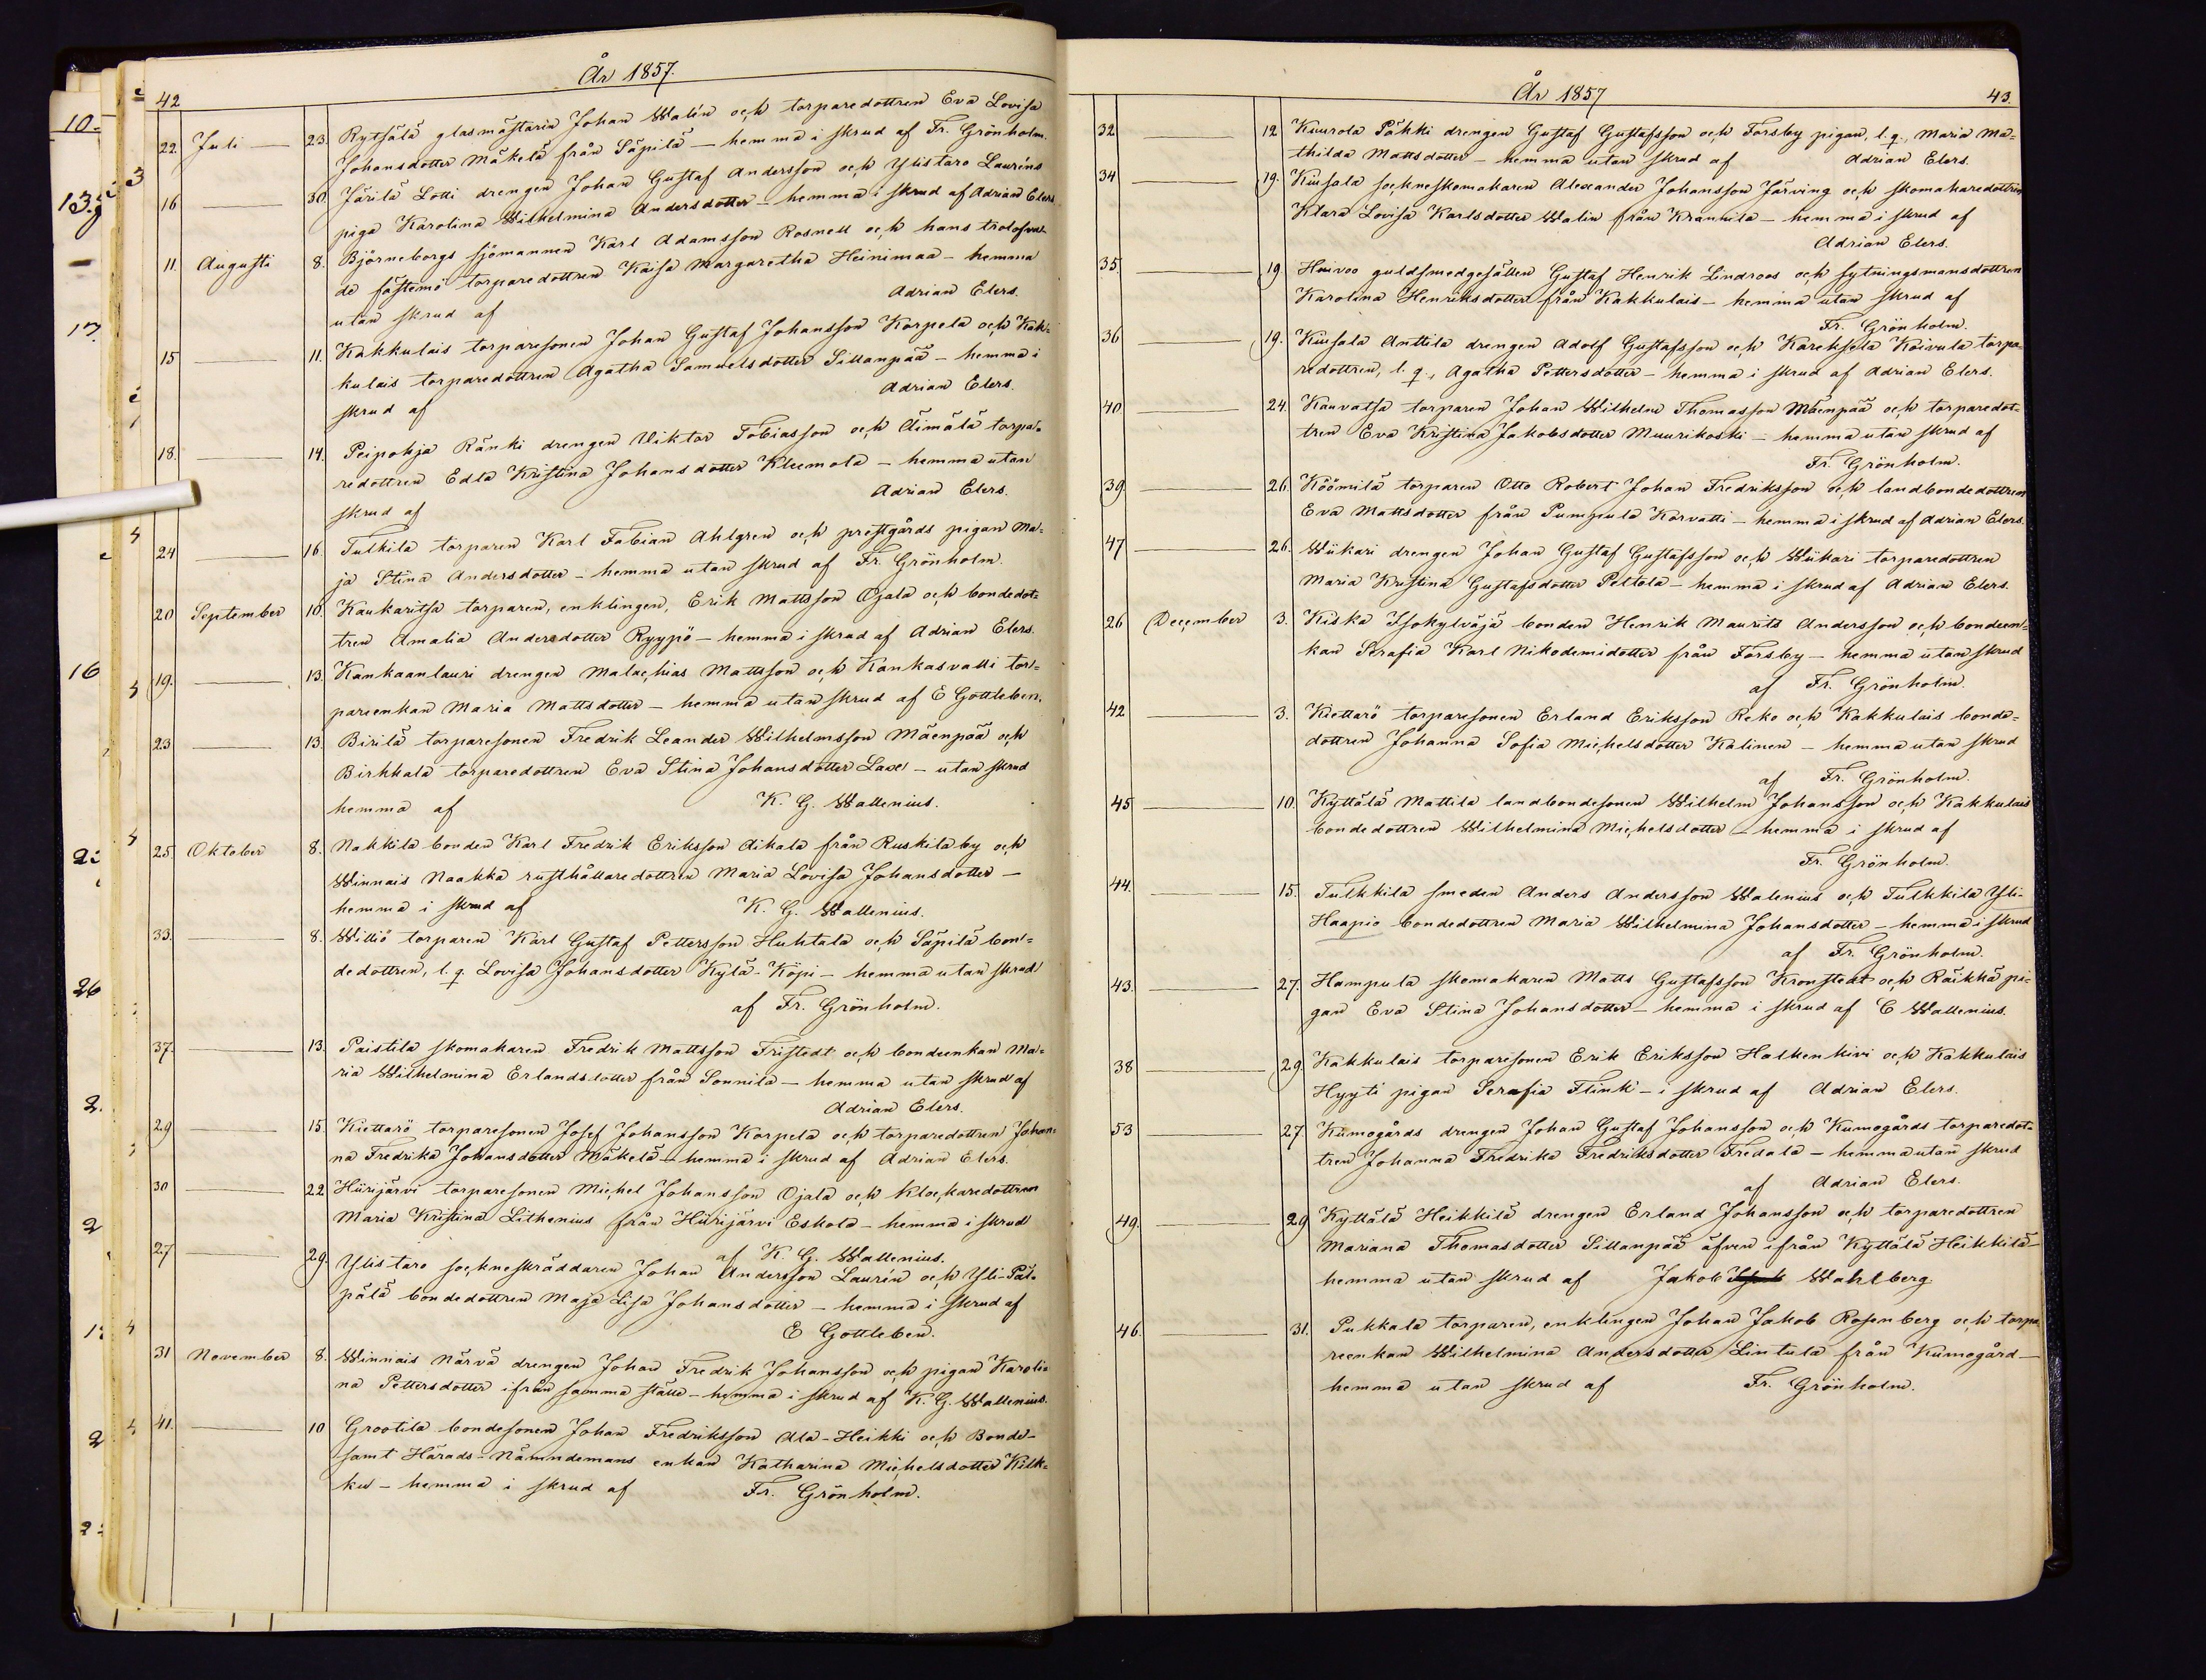 År 1857.
42
22. Juli 23. Rytsälä glasmästarin Johan Walin och torparedottren Eva Lovisa
Johansdotter Mäkelä från Säpilä — hemma i skrud af Fr. Grönholm.
16 — 30. Järilä Lotti drengen Johan Gustaf Andersson och Ylistaro Lauréns
piga Karolina Wilhelmina Andersdotter — hemma i skrud af Adrian Elers.
11. Augusti 8. Björneborgs sjömannen Karl Adamsson Rosnell och hans trolofva-
de fästemö torparedottren Kaisa Margaretha Heinimaa — hemma
utan skrud af Adrian Elers.
15 — 11. Kakkulais torparesonen Johan Gustaf Johansson Korpela och Kak-
kulais torparedottren Agatha Samuelsdotter Sillanpää — hemma i
skrud af Adrian Elers.
18. — 14. Peipohja Ränki drengen Viktor Tobiasson och Äimälä torpa-
redottren Edla Kristina Johansdotter Kleemola — hemma utan
skrud af Adrian Elers.
24 — 16. Tulkila torparen Karl Fabian Ahlgren och prestgårds pigan Ma-
ja Stina Andersdotter — hemma utan skrud af Fr. Grönholm.
20 September 10. Kaukaritsa torparen, enklingen, Erik Mattsson Ojala och bondedot-
tren Amalia Andersdotter Ryypö — hemma i skrud af Adrian Elers.
19. — 13. Kankaanlauri drengen Malachias Mattsson och Kankasvalli tor-
pareenkan Maria Mattsdotter — hemma utan skrud af E Gottleben.
23 — 13. Birilä torparesonen Fredrik Leander Wilhelmsson Mäenpää och
Birkkala torparedottren Eva Stina Johansdotter Laxe — utan skrud
hemma af K. G. Wallenius.
25 Oktober 8. Nakkila bonden Karl Fredrik Eriksson Aikala från Ruskila by och
Winnais Naakka rusthållaredottren Maria Lovisa Johansdotter —
hemma i skrud af K. G. Wallenius.
33. — 8. Willio torparen Karl Gustaf Pettersson Huhtala och Säpilä bon-
dedottren, l. q. Lovisa Johansdotter Kylä-Köpi — hemma utan skrud
af Fr. Grönholm.
37. — 13. Paistila skomakaren Fredrik Mattsson Fristedt och bondeenkan Ma-
ria Wilhelmina Erlandsdotter från Sonnila — hemma utan skrud af
Adrian Elers.
29 — 15. Kiettarö torparesonen Josef Johansson Korpela och torparedottren Johan-
na Fredrika Johansdotter Mäkelä — hemma i skrud af Adrian Elers.
30 — 22 Hiirijärvi torparesonen Michel Johansson Ojala och klockaredottren
Maria Kristina Lithenius från Hiirijärvi Eskola — hemma i skrud
af K. G. Wallenius.
27 — 29. Ylistaro sockneskräddaren Johan Andersson Laurin och Yli-Päl-
pälä bondedottren Maja Lisa Johansdotter — hemma i skrud af
E Gottleben.
31 November 8. Winnais Närvä drengen Johan Fredrik Johansson och pigan Karoli-
na Pettersdotter ifrån samma ställe — hemma i skrud af K. G. Wallenius.
41. — 10 Grootila bondesonen Johan Fredriksson Ala-Heikki och Bonde-
samt Härads-Nämndemans enkan Katharina Michelsdotter Kilk-
ku — hemma i skrud af Fr. Grönholm.
År 1857
43.
32 — 12 Kuurola Päkki drengen Gustaf Gustafsson och Forsby pigan, l. q., Maria Ma-
thilda Mattsdotter — hemma utan skrud af Adrian Elers.
34 — 19. Kiusala sockneskomakaren Alexander Johansson Järving och skomakaredottren
Klara Lovisa Karlsdotter Walin från Krannila — hemma i skrud af
Adrian Elers.
35 — 19 Huivoo guldsmedgesällen Gustaf Henrik Lindroos och sytningsmansdottren
Karolina Henriksdotter från Kakkulais — hemma utan skrud af
Fr. Grönholm.
36 — 19. Kiusala Anttila drengen Adolf Gustafsson och Kareksela Koivula torpa-
redottren, l. q., Agatha Pettersdotter — hemma i skrud af Adrian Elers.
40 — 24. Kauvatsa torparen Johan Wilhelm Thomasson Mäenpää och torparedot-
tren Eva Kristina Jakobsdotter Muurikoski — hemma utan skrud af
Fr. Grönholm.
39 — 26. Köömilä torparen Otto Robert Johan Fredriksson och landbondedottren
Eva Mattsdotter från Pumpula Korvatti — hemma i skrud af Adrian Elers.
47 — 26. Wiikari drengen Johan Gustaf Gustafsson och Wiikari torparedottren
Maria Kristina Gustafsdotter Peltola — hemma i skrud af Adrian Elers.
26 December 3. Kiska Isokylväjä bonden Henrik Maurits Andersson och bondeen-
kan Serafia Karl Nikodemidotter från Forsby — hemma utan skrud
af Fr. Grönholm.
42 — 3. Kiettarö torparesonen Erland Eriksson Reko och Kakkulais bonde-
dottren Johanna Sofia Michelsdotter Kalinen — hemma utan skrud
af Fr. Grönholm.
45 — 10. Kyttälä Mattila landbondesonen Wilhelm Johansson och Kakkulais
bondedottren Wilhelmina Michelsdotter — hemma i skrud af
Fr. Grönholm.
44. — 15. Tulkkila smeden Anders Andersson Walenius och Tulkkila Yli-
Haapio bondedottren Maria Wilhelmina Johansdotter — hemma i skrud
af Fr. Grönholm.
43. — 27. Hampula skomakaren Matts Gustafsson Kronstedt och Räikkä pi-
gan Eva Stina Johansdotter — hemma i skrud af C Wallenius.
38 — 29. Kakkulais torparesonen Erik Eriksson Halkenkivi och Kakkulais
Hyyti pigan Serafia Flink — i skrud af Adrian Elers.
53 — 27. Kumogårds drengen Johan Gustaf Johansson och Kumogårds torparedot-
tren Johanna Fredrika Fredriksdotter Fredala — hemma utan skrud
af Adrian Elers.
49. — 29 Kyttälä Heikkilä drengen Erland Johansson och torparedottren
Mariana Thomasdotter Sillanpää äfven ifrån Kyttälä Heikkilä —
hemma utan skrud af Jakob Wahlberg
46. — 31. Pukkala torparen, enklingen Johan Jakob Rosenberg och torpa
reenkan Wilhelmina Andersdotter Lintula från Kumogård —
hemma utan skrud af Fr. Grönholm.